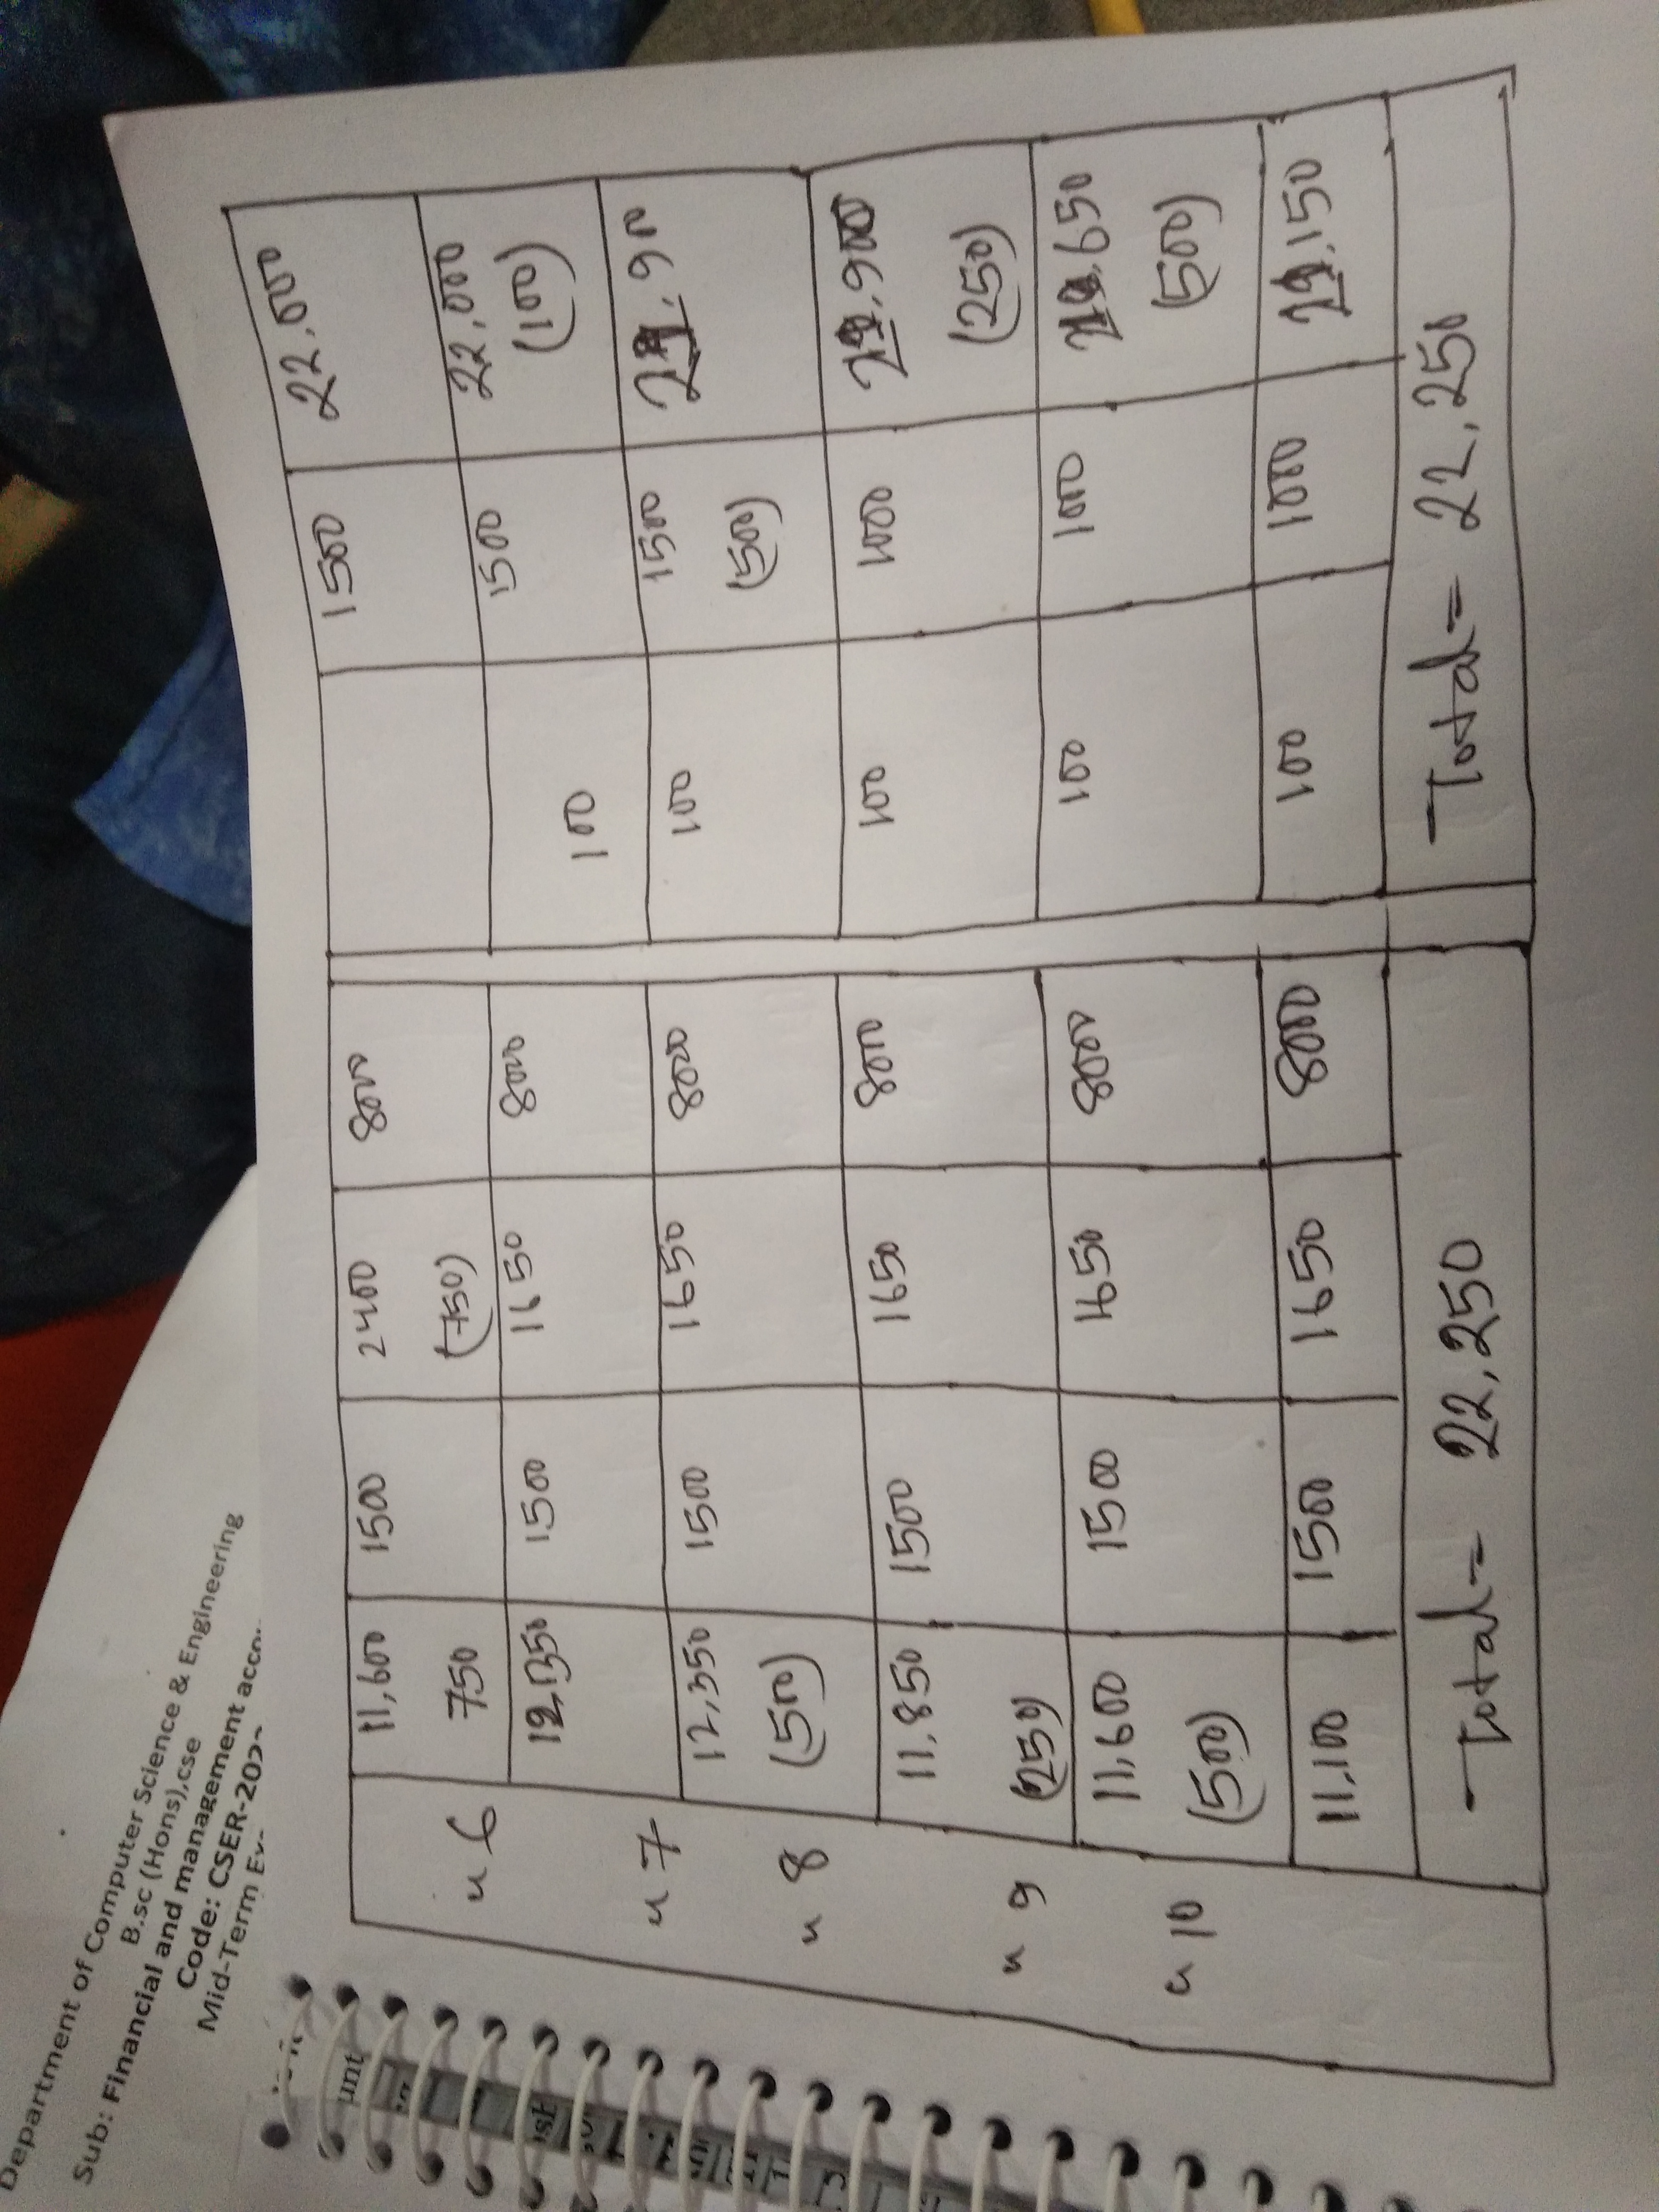 Department of Computer Science & Engineering
B.sc (Hons),cse
Sub: Financial and management acco
Code: CSER-202
Mid-Term Ex
unt
11,600 1500 2400 8000 1500 22,000
" 6 750 (750)
12,350 1500 1650 8000 1500 22,000
" 7 100 (100)
12,350 1500 1650 8000 100 1500 21,900
" 8 (500) (500)
11,850 1500 1650 8000 100 1000 21,900
" 9 (250) (250)
11,600 1500 1650 8000 100 1000 21,650
" 10 (500) (500)
11,100 1500 1650 8000 100 1000 21,150
Total = 22,250 Total = 22,250